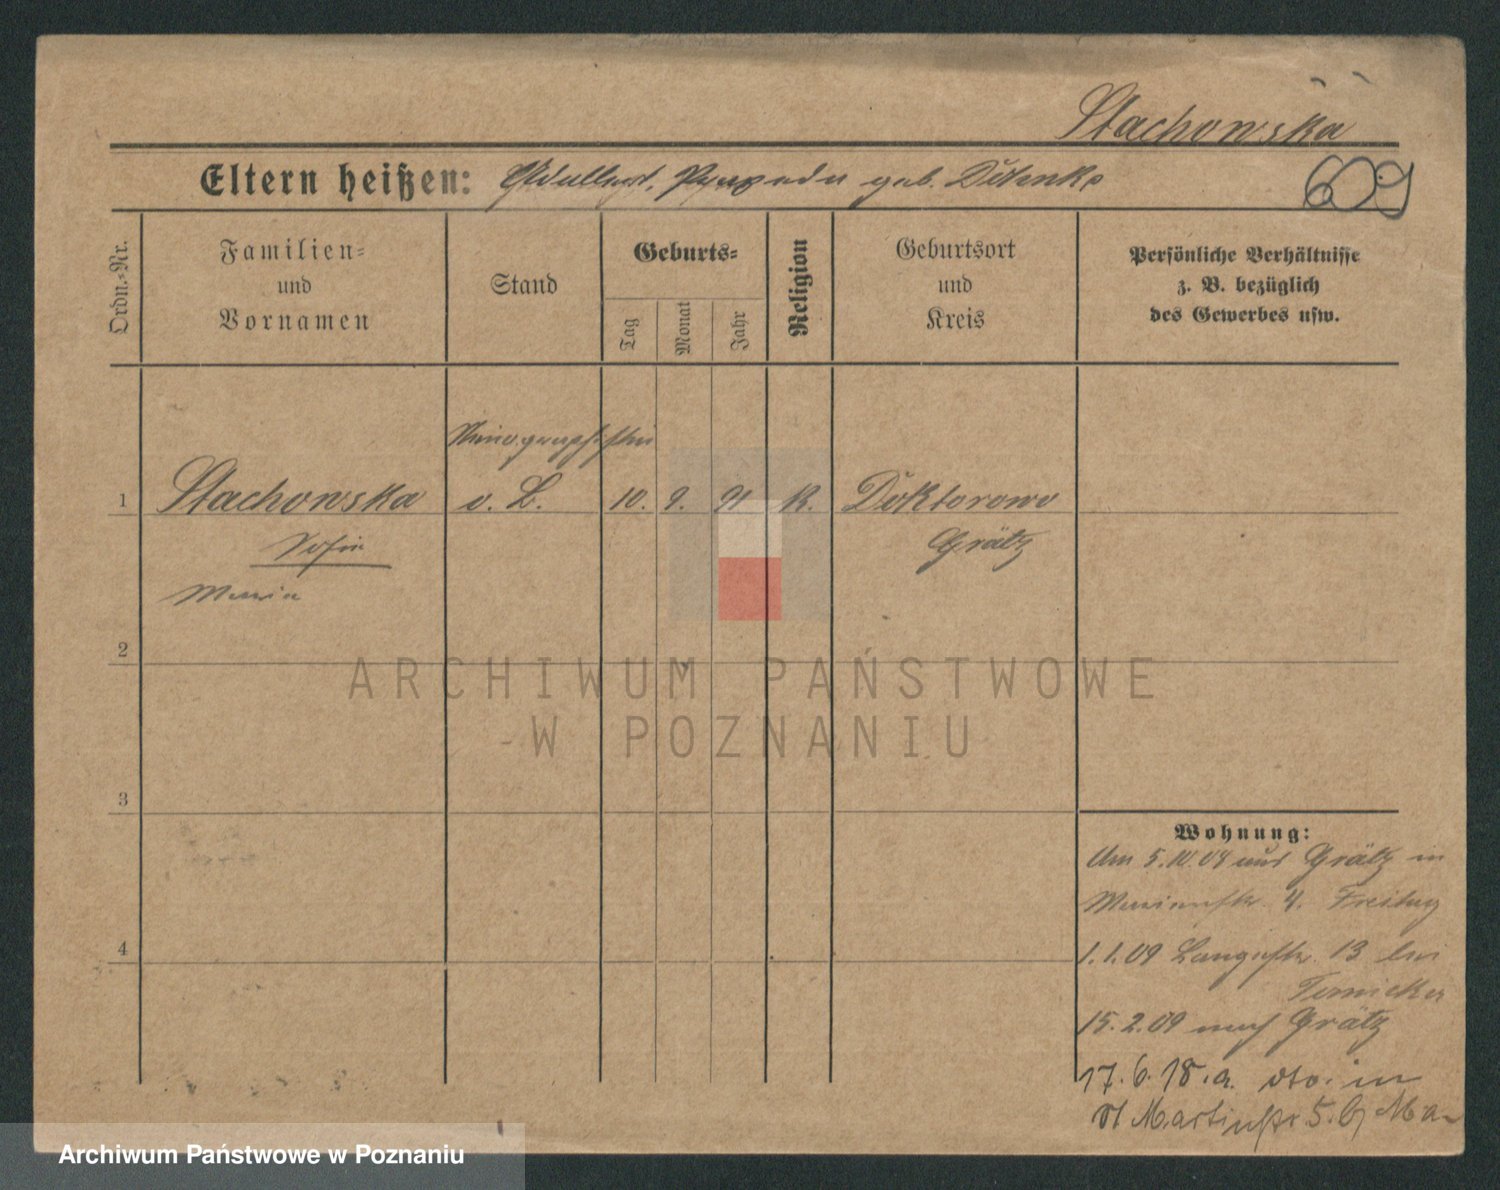 Stachowska
Eltern heißen: Adalbert, Pyrzada geb. Ditenke
609
Ordn.-Nr.
Familien-
und
Vornamen
Stand
Geburts-
Tag
Monat
Jahr
Religion
Geburtsort
und
Kreis
Persönliche Verhältnisse
z. B. bezüglich
des Gewerbes usw.
1
Stachowska
o. L. 10. 9. 91 K. Doktorowo
Grätz
Sofie
Maria
2
3
4
Wohnung:
Am 5.10.08 aus Grätz in
4. Freitag
1.1.09 Langestr. 13 bei
15.2.09 nach Grätz
17.6.18. a. dto. in
St Martinstr 5. b/
ARCHIWUM PAŃSTWOWE
W POZNANIU
Archiwum Państwowe w Poznaniu